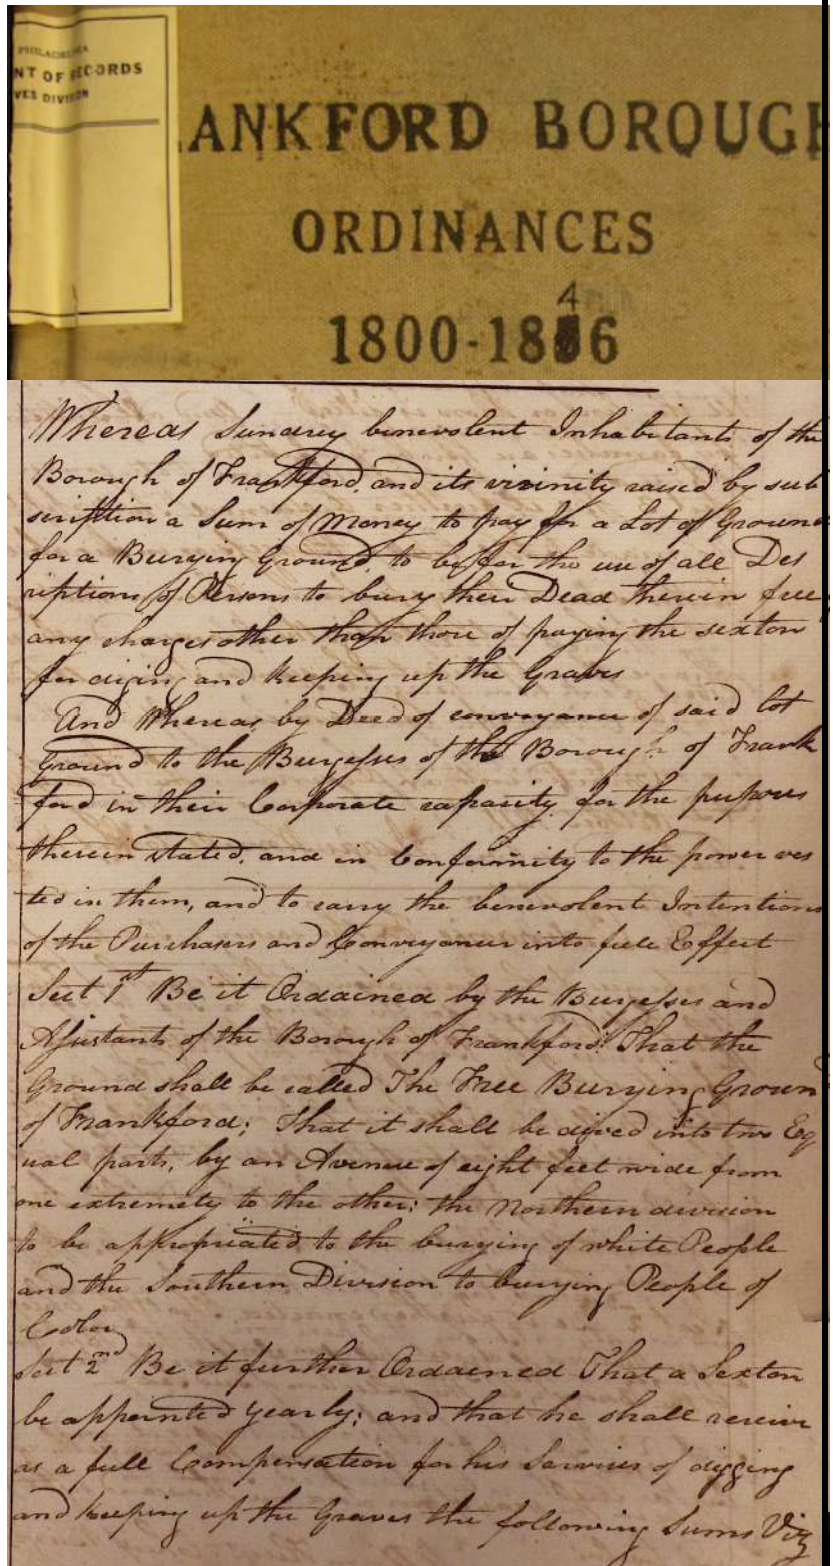 PHILADELPHIA
NT OF RECORDS
VES DIVISION
ANKFORD BOROUGH
ORDINANCES
4
1800-1856
Whereas Sundrey benevolent Inhabitants of the
Borough of Frankford, and its vicinity raised by sub
scription a Sum of Money to pay for a Lot of Ground
for a Burying Ground, to be for the use of all Des
riptions of Persons to bury their Dead therein free
any charges other than those of paying the sexton
for diging and keeping up the Graves
And Whereas, by Deed of conveyance of said lot
Ground to the Burgesses of the Borough of Frank
ford in their Corporate capacity, for the purposes
therein stated, and in Conformity to the power ves
ted in them, and to carry the benevolent Intentions
of the Purchasers and Conveyances into full Effect
Sect 1st Be it Ordained by the Burgesses and
Assistants of the Borough of Frankford: That the
Ground shall be called The Free Burying Groun
of Frankford; That it shall be dived into two Eq
ual parts, by an Avenue of eight feet wide from
one extremety to the other; the Northern division
to be appropriated to the burying of white People
and the Southern Division to burying People of
Color
Sect 2nd Be it further Ordained That a Sexton
be appointed yearly; and that he shall receive
as a full Compensation for his Services of digging
and keeping up the Graves the following Sums Viz